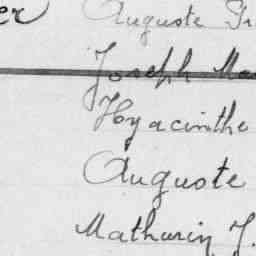 er Auguste
Joseph
Hyacinthe
Auguste
Mathurin J.